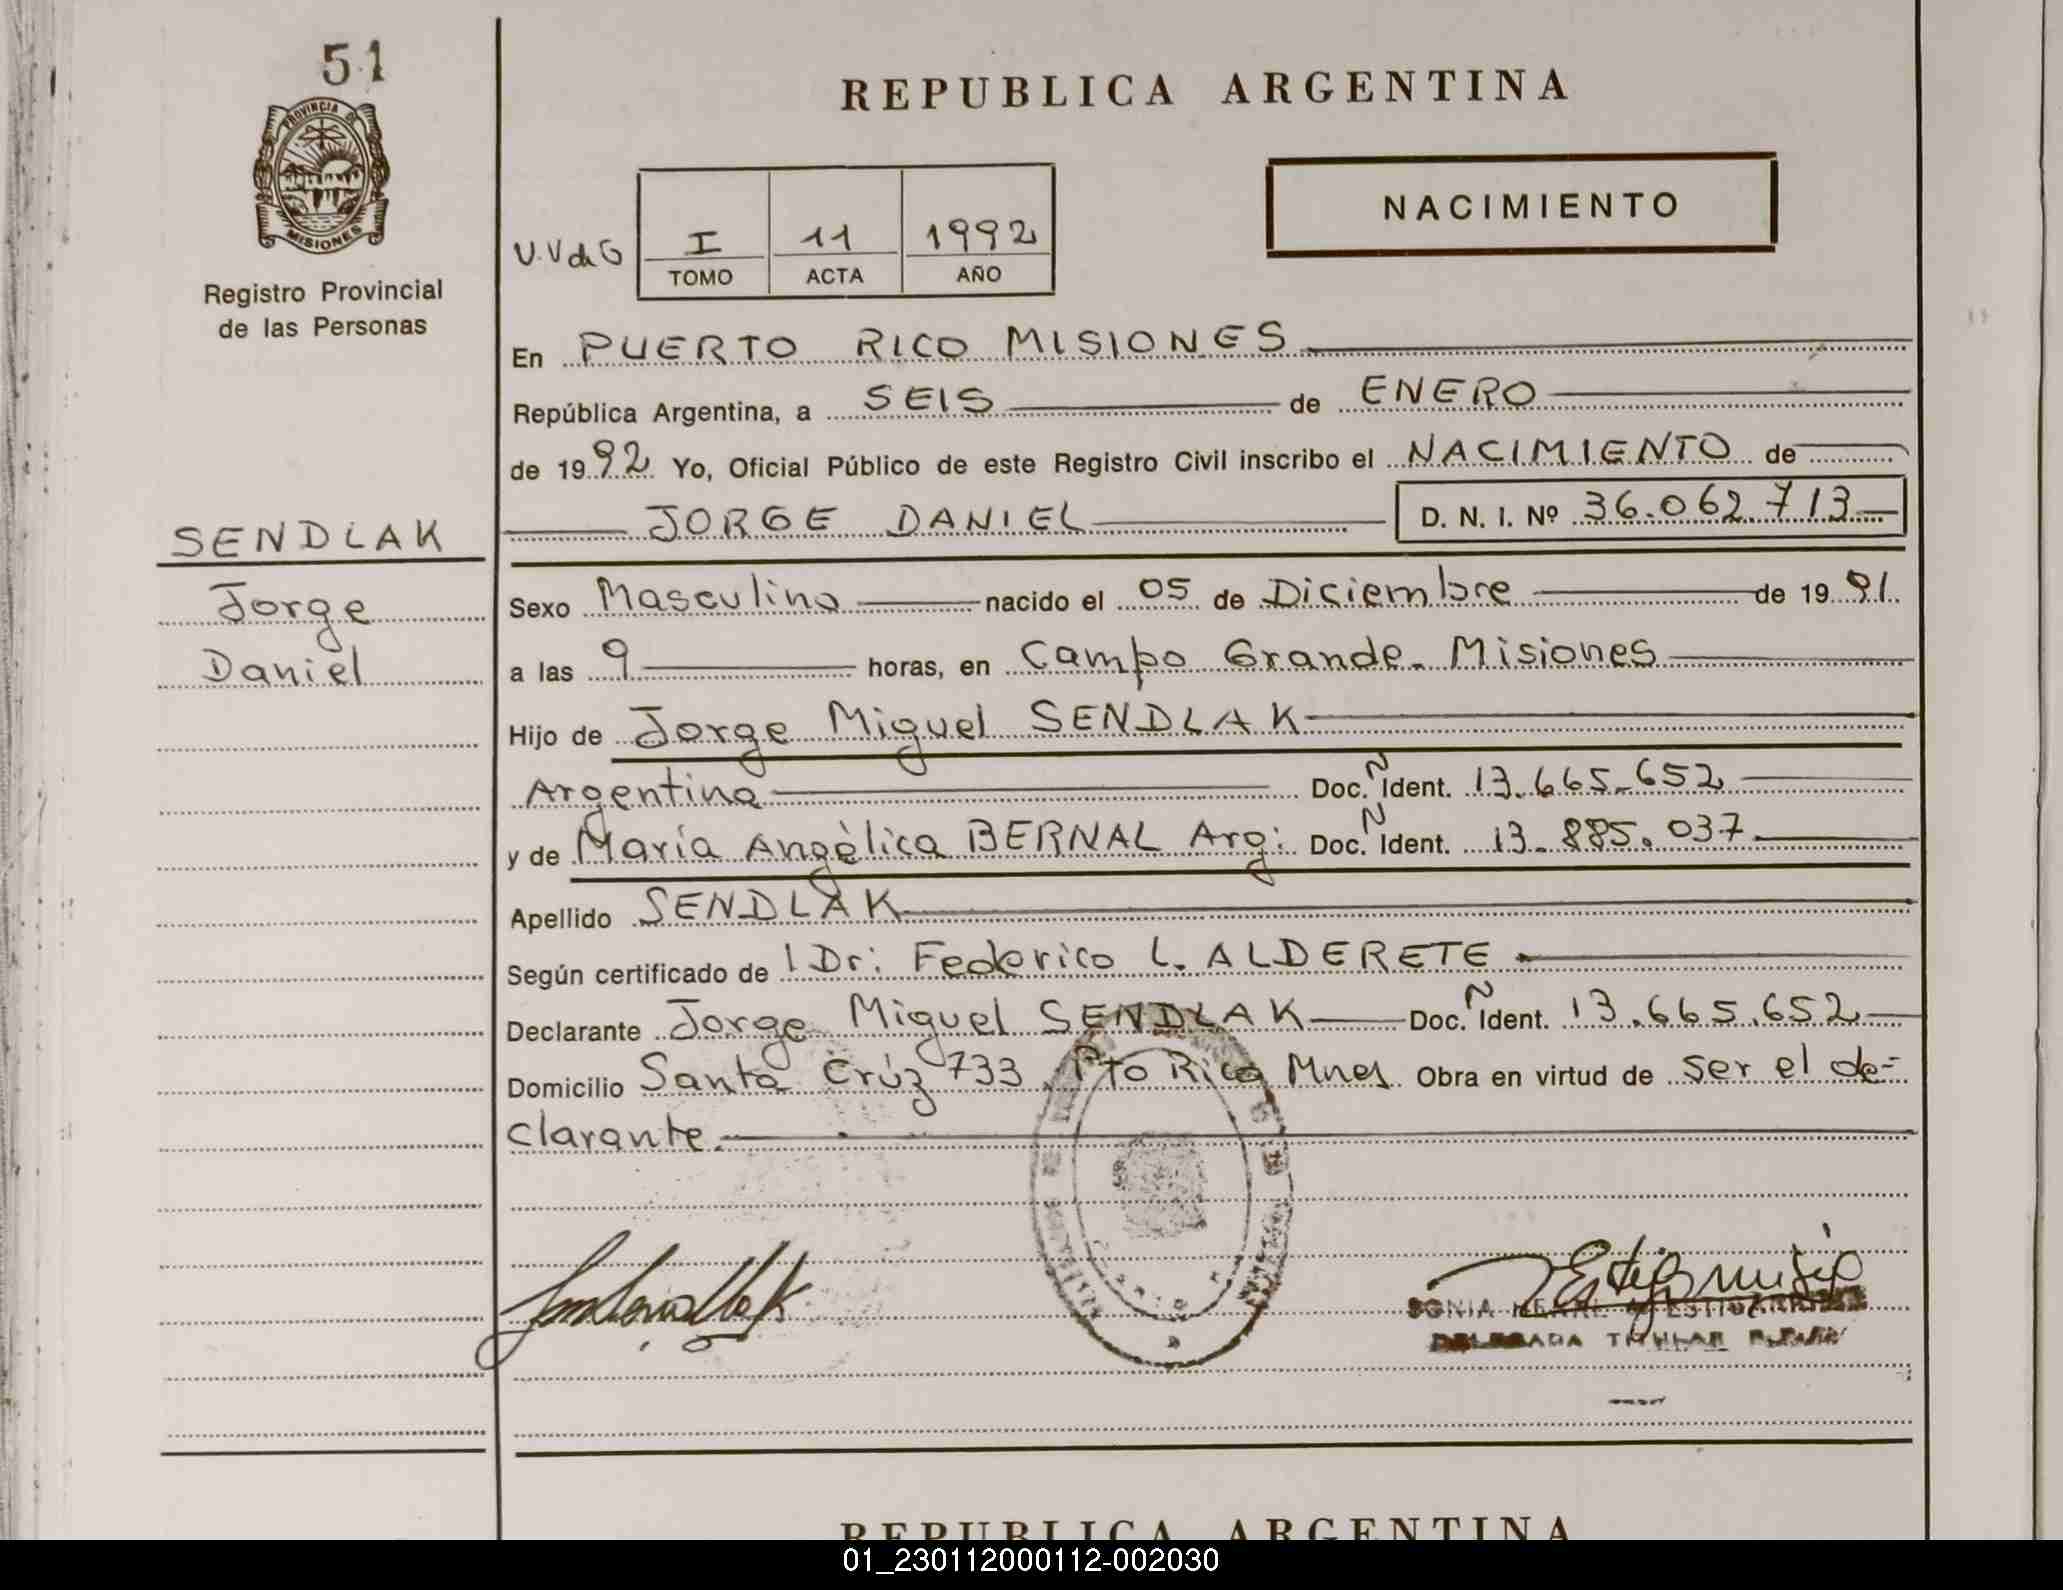 51
PROVINCIA DE
MISIONES
Registro Provincial
de las Personas
REPUBLICA ARGENTINA
NACIMIENTO
U.V de G
I 11 1992
TOMO ACTA AÑO
En PUERTO RICO MISIONES
República Argentina, a SEIS de ENERO
de 1992 Yo, Oficial Público de este Registro Civil inscribo el NACIMIENTO de
JORGE DANIEL D. N. I. Nº 36.062.713
SENDLAK
Jorge
Daniel
Sexo Masculino nacido el 05 de Diciembre de 1991.
a las 9 horas, en Campo Grande. Misiones
Hijo de Jorge Miguel SENDLAK
Argentina Doc. Ñ Ident. 13.665.652
y de María Angélica BERNAL Arg: Doc. N Ident. 13.885.037
Apellido SENDLAK
Según certificado de l Dr: Federico L. ALDERETE
Declarante Jorge Miguel SENDLAK Doc. Ñ Ident. 13.665.652
Domicilio Santa Crúz 733 Pto Rico Mnes. Obra en virtud de ser el de-
clarante.
SONIA
DELEGADA TITULAR
REPUBLICA ARGENTINA
01_230112000112-002030